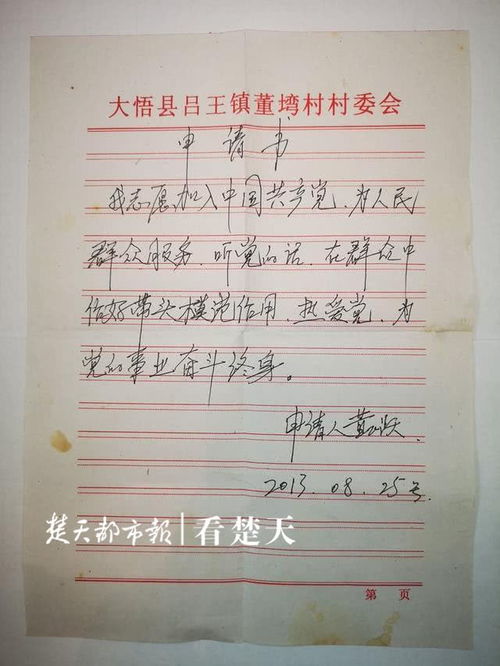 大悟县吕王镇董塆村村委会
申请书
我志愿加入中国共产党、为人民
群众服务、听党的话、在群众中
做好带头模范作用、热爱党、为
党的事业奋斗终身。
申请人董跃
2013.08.25号
楚天都市报 看楚天
第 页